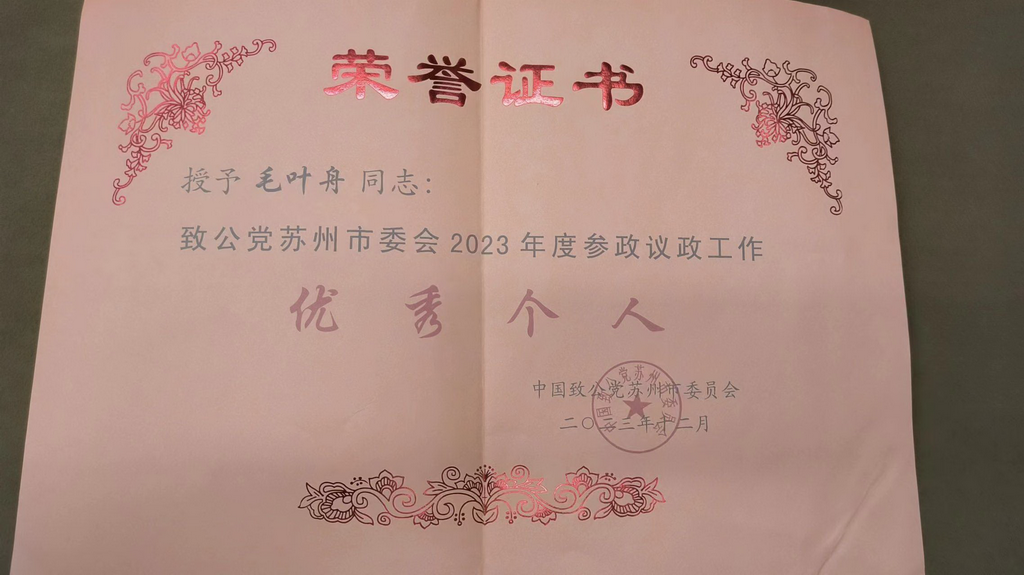 荣誉证书
授予 毛叶舟 同志：
致公党苏州市委会 2023 年度参政议政工作
优秀个人
中国致公党苏州市委员会
二〇二三年十二月